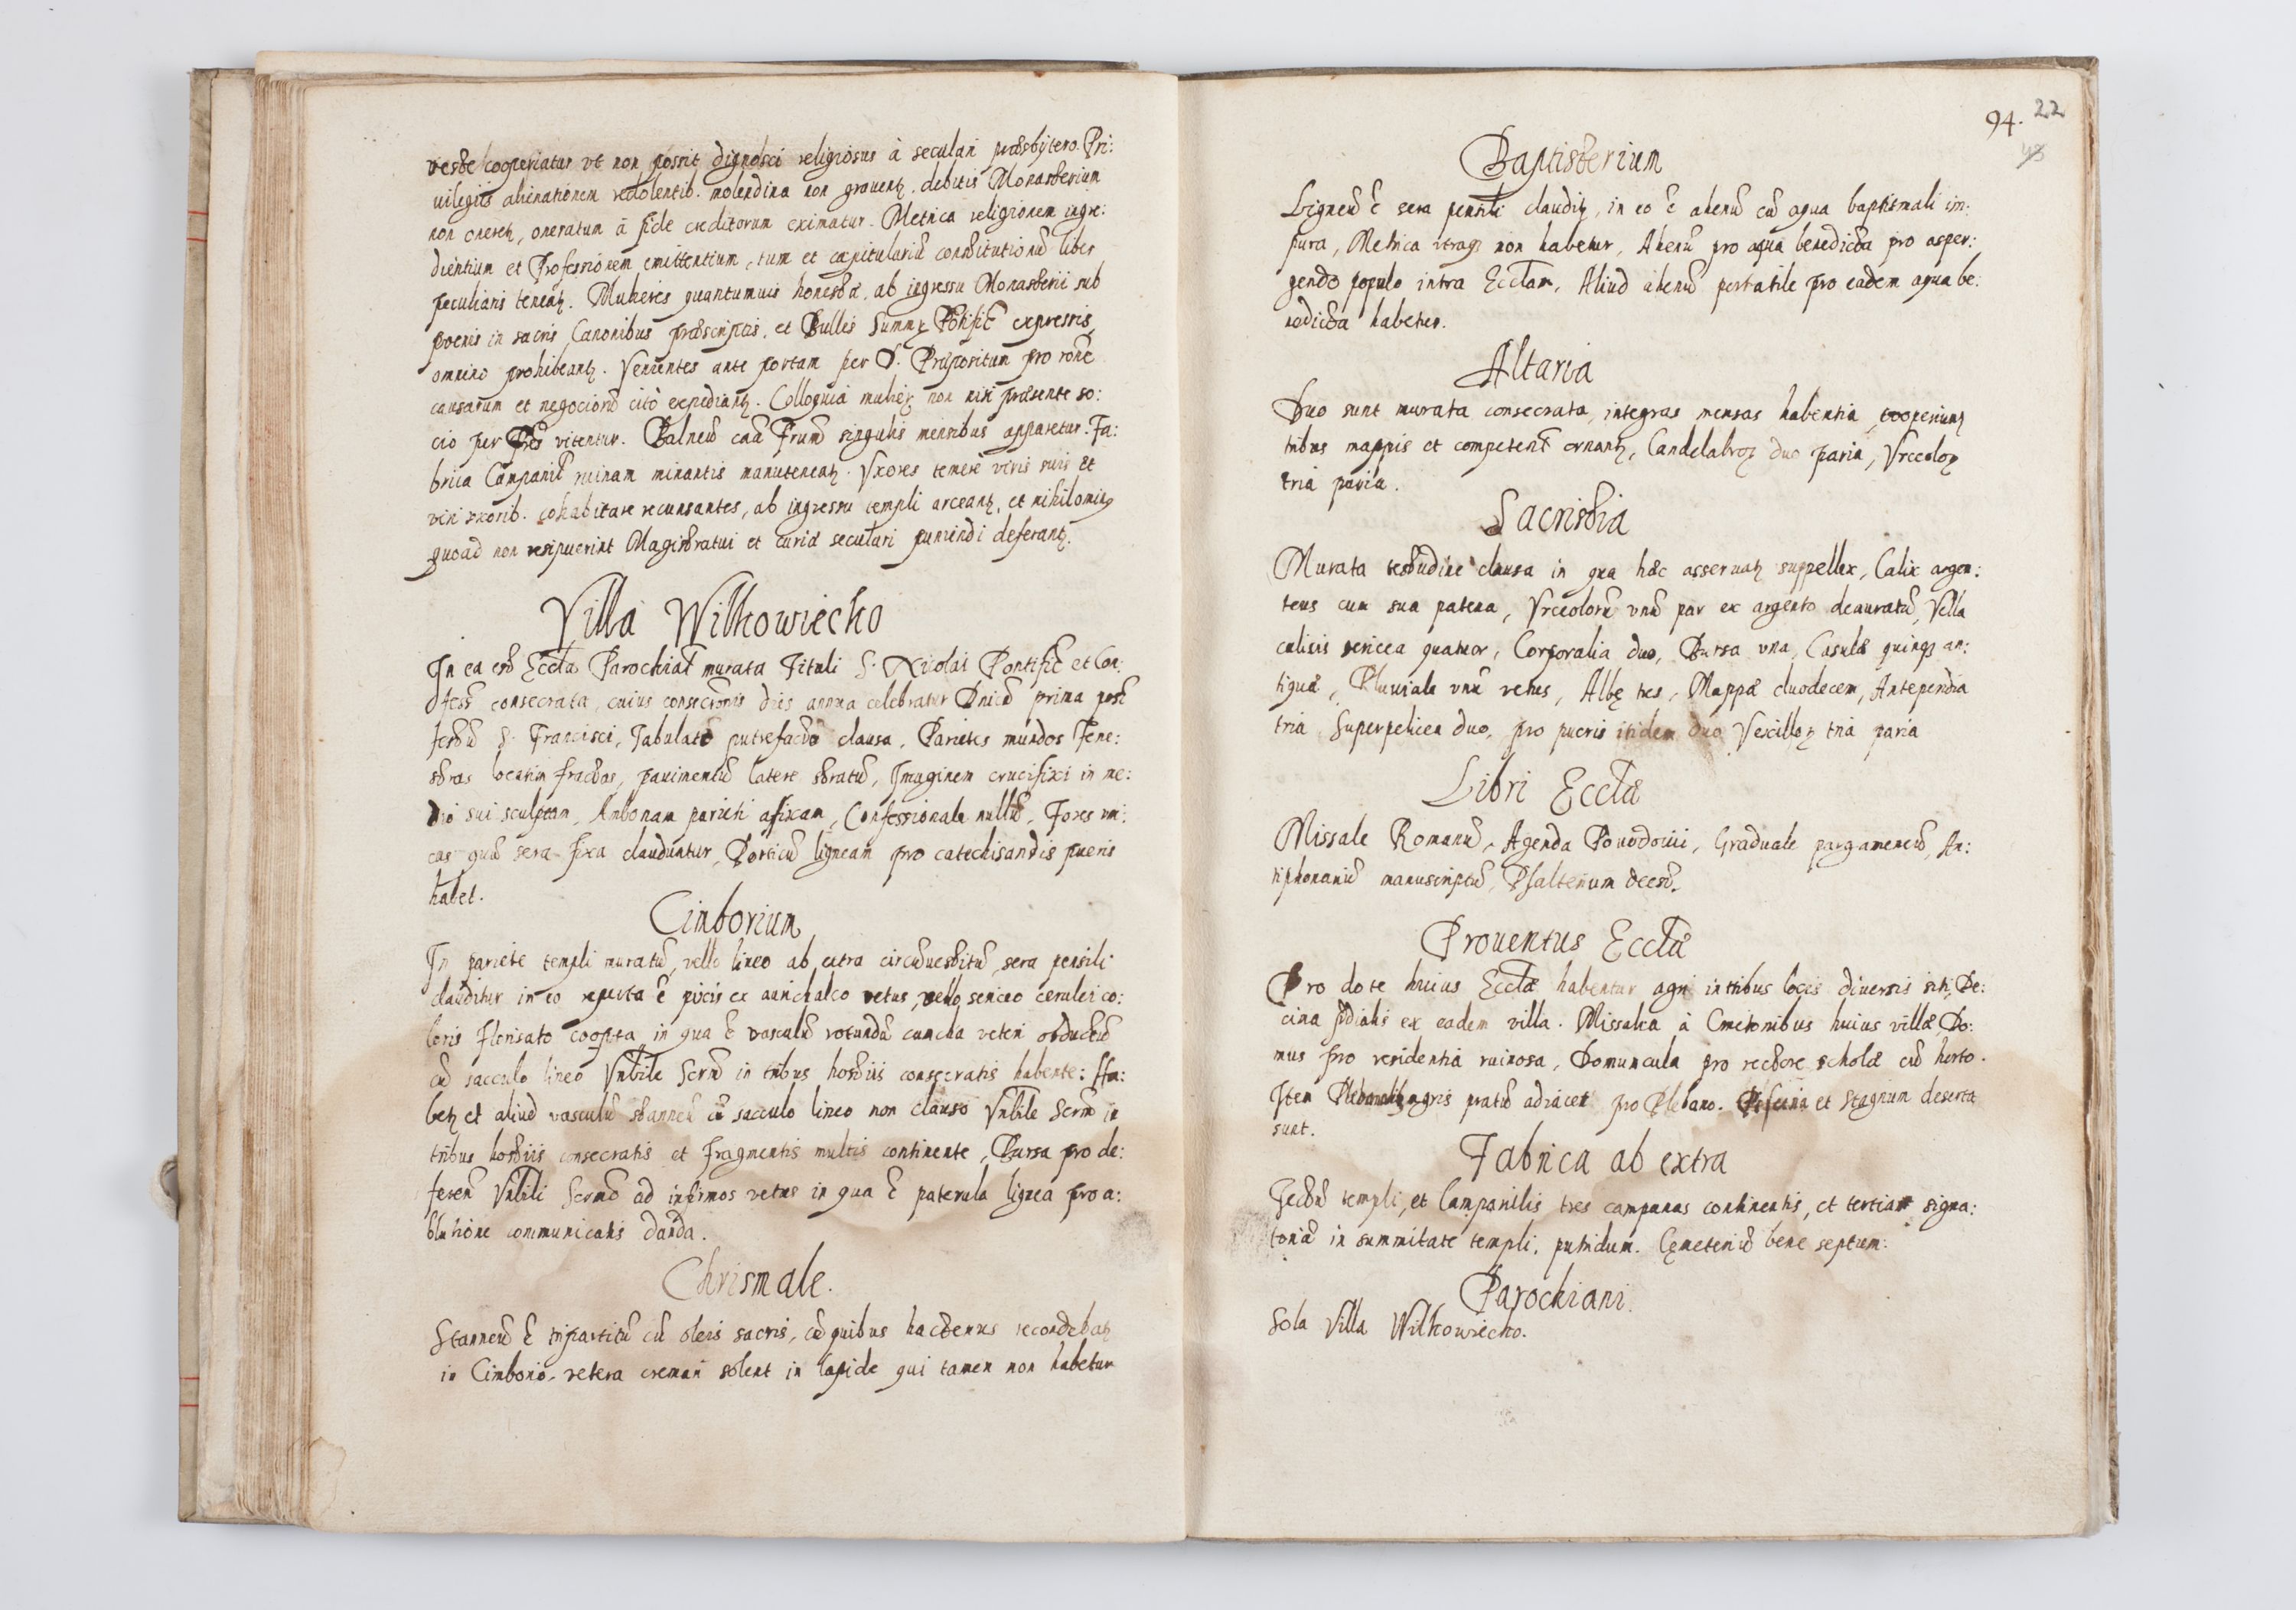 veste cooperiatur vt non possit dignosci religiosus à seculari præsbytero. Pri:
uilegiis alienationem redolentib. molendina non grauentꝫ. debitis Monasterium
non oneretꝫ, oneratum à fide creditorum eximatur. Metrica religionem ingre:
dientium et Professionem emittentium, tum et capitulariũ constitutionũ liber
peculiaris teneatꝫ. Mulieres quantumuis honestæ, ab ingressu Monasterii sub
poenis in sacris Canonibus præscriptis, et Bullis Summꝝ Pontific̃ expressis,
omnino prohibeantꝫ. Venientes ante portam per D. Præpositum pro ronẽ
causarum et negociorũ citò expediantꝫ. Colloquia mulieꝝ non nisi præsente so:
cio per Pres vitentur. Balneũ caũ Frum̃ singulis mensibus apparetur. Fa:
brica Campanil̃ ruinam minantis manuteneatꝫ. Vxores temerè viris suis et
viri vxorib. cohabitare recusantes, ab ingressu templi arceantꝫ, et nihilominꝰ
quoad non resipuerint Magistratui et curiæ seculari puniendi deferantꝫ.
Villa Wilkowiecko
In ea est Eccl̃a Parochial̃ murata Tituli S. Nicolai Pontific̃ et Con:
fess̃ consecrata, cuius consecr̃onis dies annua celebratur Dnicũ prima post
festũ S. Francisci, Tabulatũ putrefacto clausa, Parietes mundos Fene:
stras locatim fractas, pauimentũ latere stratũ, Imaginem crucifixi in me:
dio sui sculptam, Ambonam parieti afixam, Confessionale nullũ, Fores vni:
cas quæ sera fixa clauduntur, Porticũ ligneam pro catechisandis pueris
habet.
Cimborium
In pariete templi muratũ, vello lineo ab extra circũuestitũ, sera pensili
clauditur in eo reperta ẽ pixis ex aurichalco vetus, vello sericeo cerulei co:
loris florisato coopta in qua ẽ vasculũ rotundũ cum cha veteri obductũ
cũ sacculo lineo Vnbile Sacrm̃ in tribus hostiis consecratis habente: Ha:
betꝫ et aliud vasculũ stanneũ cũ sacculo lineo non clauso Vnbile Sacrm̃ in
tribus hostiis consecratis et fragmentis multis continente, Bursa pro de:
ferenꝰ Vnbili Sacrmõ ad infirmos vetus in qua ẽ paterula lignea pro a:
blutione communicatis danda.
Chrismale.
Stanneũ ẽ tripartitũ cũ oleis sacris, cũ quibus hactenus recondebatꝫ
in Cimborio, vetera cremari solent in lapide qui tamen non habetur
94. 22
48
Baptisterium
Ligneũ ẽ sera pensili claudiꝫ, in eo ẽ ahenũ cũ aqua baptismali im:
pura, Metrica vtraqꝫ non habetur, Ahenũ pro aqua benedicta pro asper:
gendo populo intra Eccl̃am, Aliud ahenũ portatile pro eadem aqua be:
nedicta habetur.
Altaria
Duo sunt murata consecrata, integras mensas habentia, cooperiunꝫ
tribus mappis et competenꝰ ornantꝫ, Candelabroꝝ duo paria, Vrceoloꝝ
tria paria.
Sacristia
Murata testudine clausa in qua hæc asseruatꝫ suppellex, Calix argen:
teus cum sua patena, Vrceolorũ vnũ par ex argento deauratũ, Vella
calicis sericea quatuor, Corporalia duo, Bursa vna, Casulæ quinqꝫ an:
tiquæ, Pluuiale vnũ vetus, Albę tres, Mappæ duodecem, Antependia
tria Superpelicea duo, pro pueris itidem duo Vexilloꝝ tria paria
Libri Eccl̃æ
Missale Romanũ, Agenda Powodouii, Graduale pargameneũ, An:
tiphonariũ manuscriptũ, Psalterium deest.
Prouentus Eccl̃æ
Pro dote huius Eccl̃æ habentur agri in tribus locis diuersis siti, De:
cima p̃dialis ex eadem villa. Missalia à Cmetonibus huius villæ, Do:
mus pro residentia ruinosa, Domuncula pro rectore scholæ cũ horto.
Item Plebanalibꝰ agris pratũ adiacet pro Plebano. Piscina et Stagnum deserta
sunt.
Fabrica ab extra
Tectũ templi, et Campanilis tres campanas continentis, et tertiam signa:
toriã in summitate templi, putridum. Cęmeteriũ bene septum.
Parochiani.
Sola Villa Wilkowiecko.